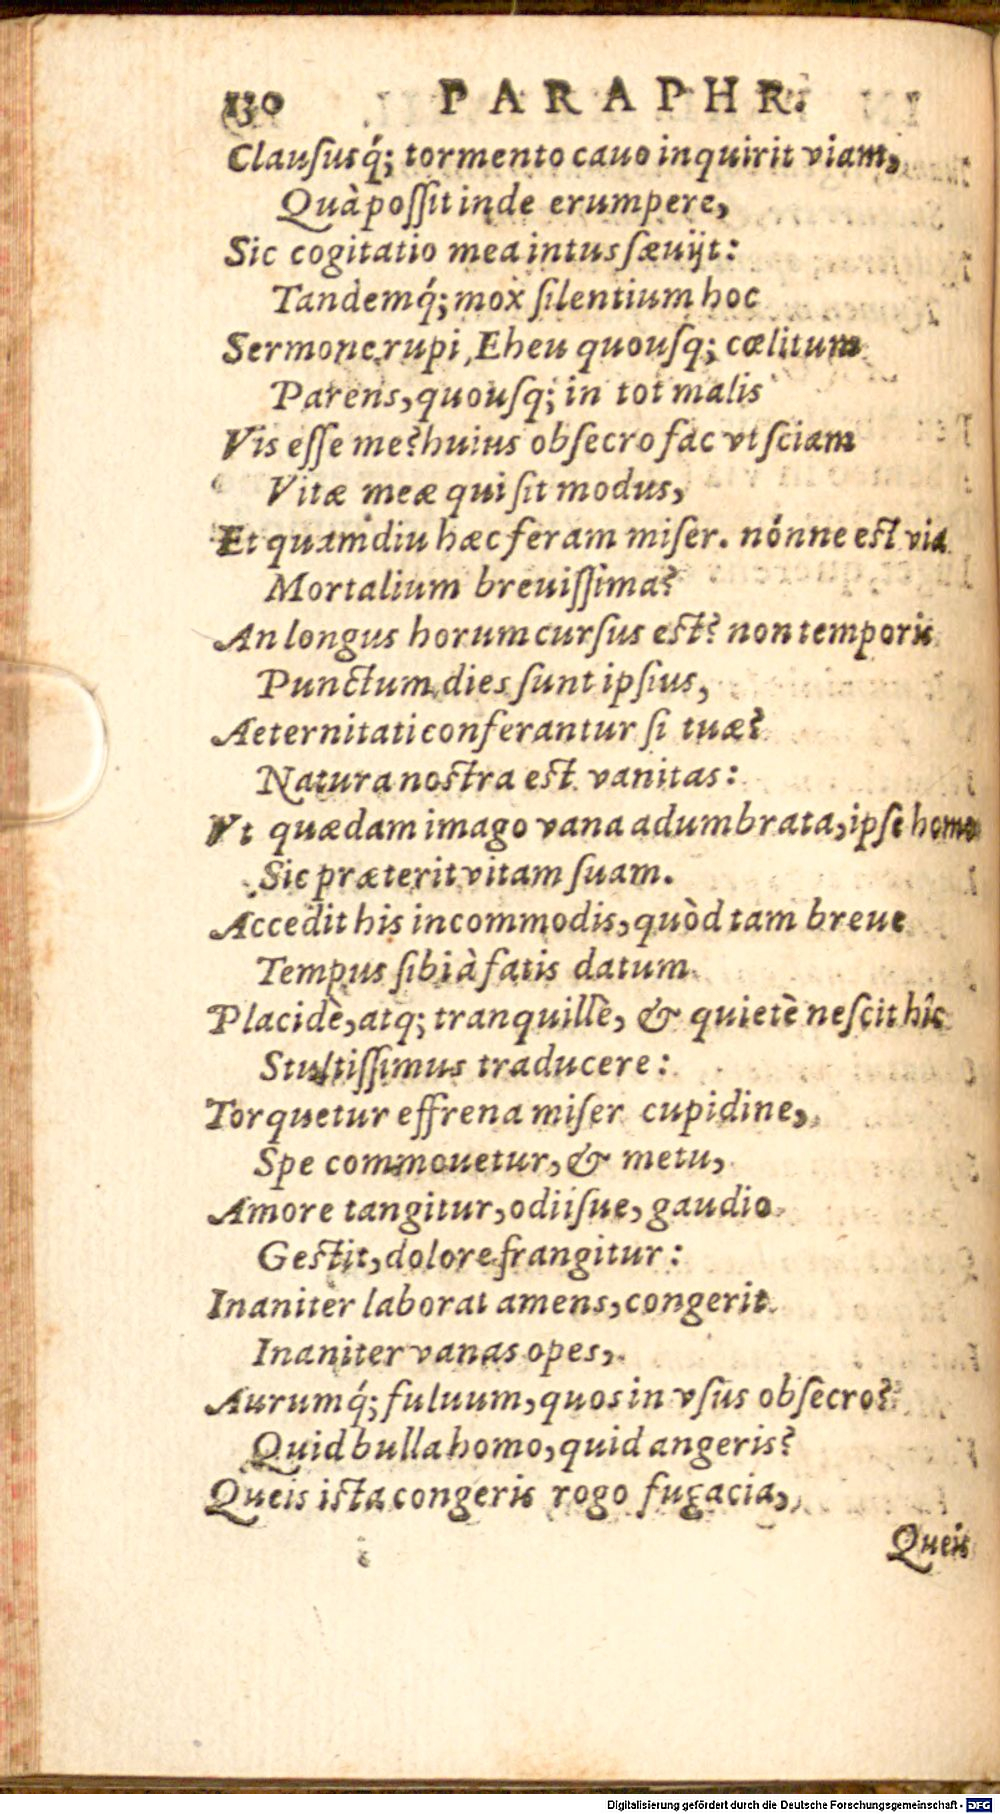 130 PARAPHR.
Clauſusq́; tormento cauo inquirit viam,
Quà poſſit inde erumpere,
Sic cogitatio mea intus ſæuijt:
Tandemq́; mox ſilentium hoc
Sermone rupi, Eheu quouſq; cælitum
Parens, quouſq; in tot malis
Vis eſſe me? huius obſecro fac vt ſciam
Vitæ meæ qui ſit modus,
Et quamdiu hæc feram miſer. nónne est via
Mortalium breuiſſima?
An longus horum curſus est? non temporis
Punctum dies ſunt ipſius,
Aeternitati conferantur ſi tuæ?
Natura nostra est vanitas:
Vt quædam imago vana adumbrata, ipſe homo
Sic præterit vitam ſuam.
Accedit his incommodis, quòd tam breue
Tempus ſibi à fatis datum
Placidè, atq; tranquillè, & quietè neſcit hîc
Stultiſſimus traducere:
Torquetur effrena miſer cupidine,
Spe commouetur, & metu,
Amore tangitur, odiiſue, gaudio
Gestit, dolore frangitur:
Inaniter laborat amens, congerit
Inaniter vanas opes,
Aurumq́; fuluum, quos in vſus obſecro?
Quid bulla homo, quid angeris?
Queis ista congeris rogo fugacia,
Queis
Digitalisierung gefördert durch die Deutsche Forschungsgemeinschaft - DFG